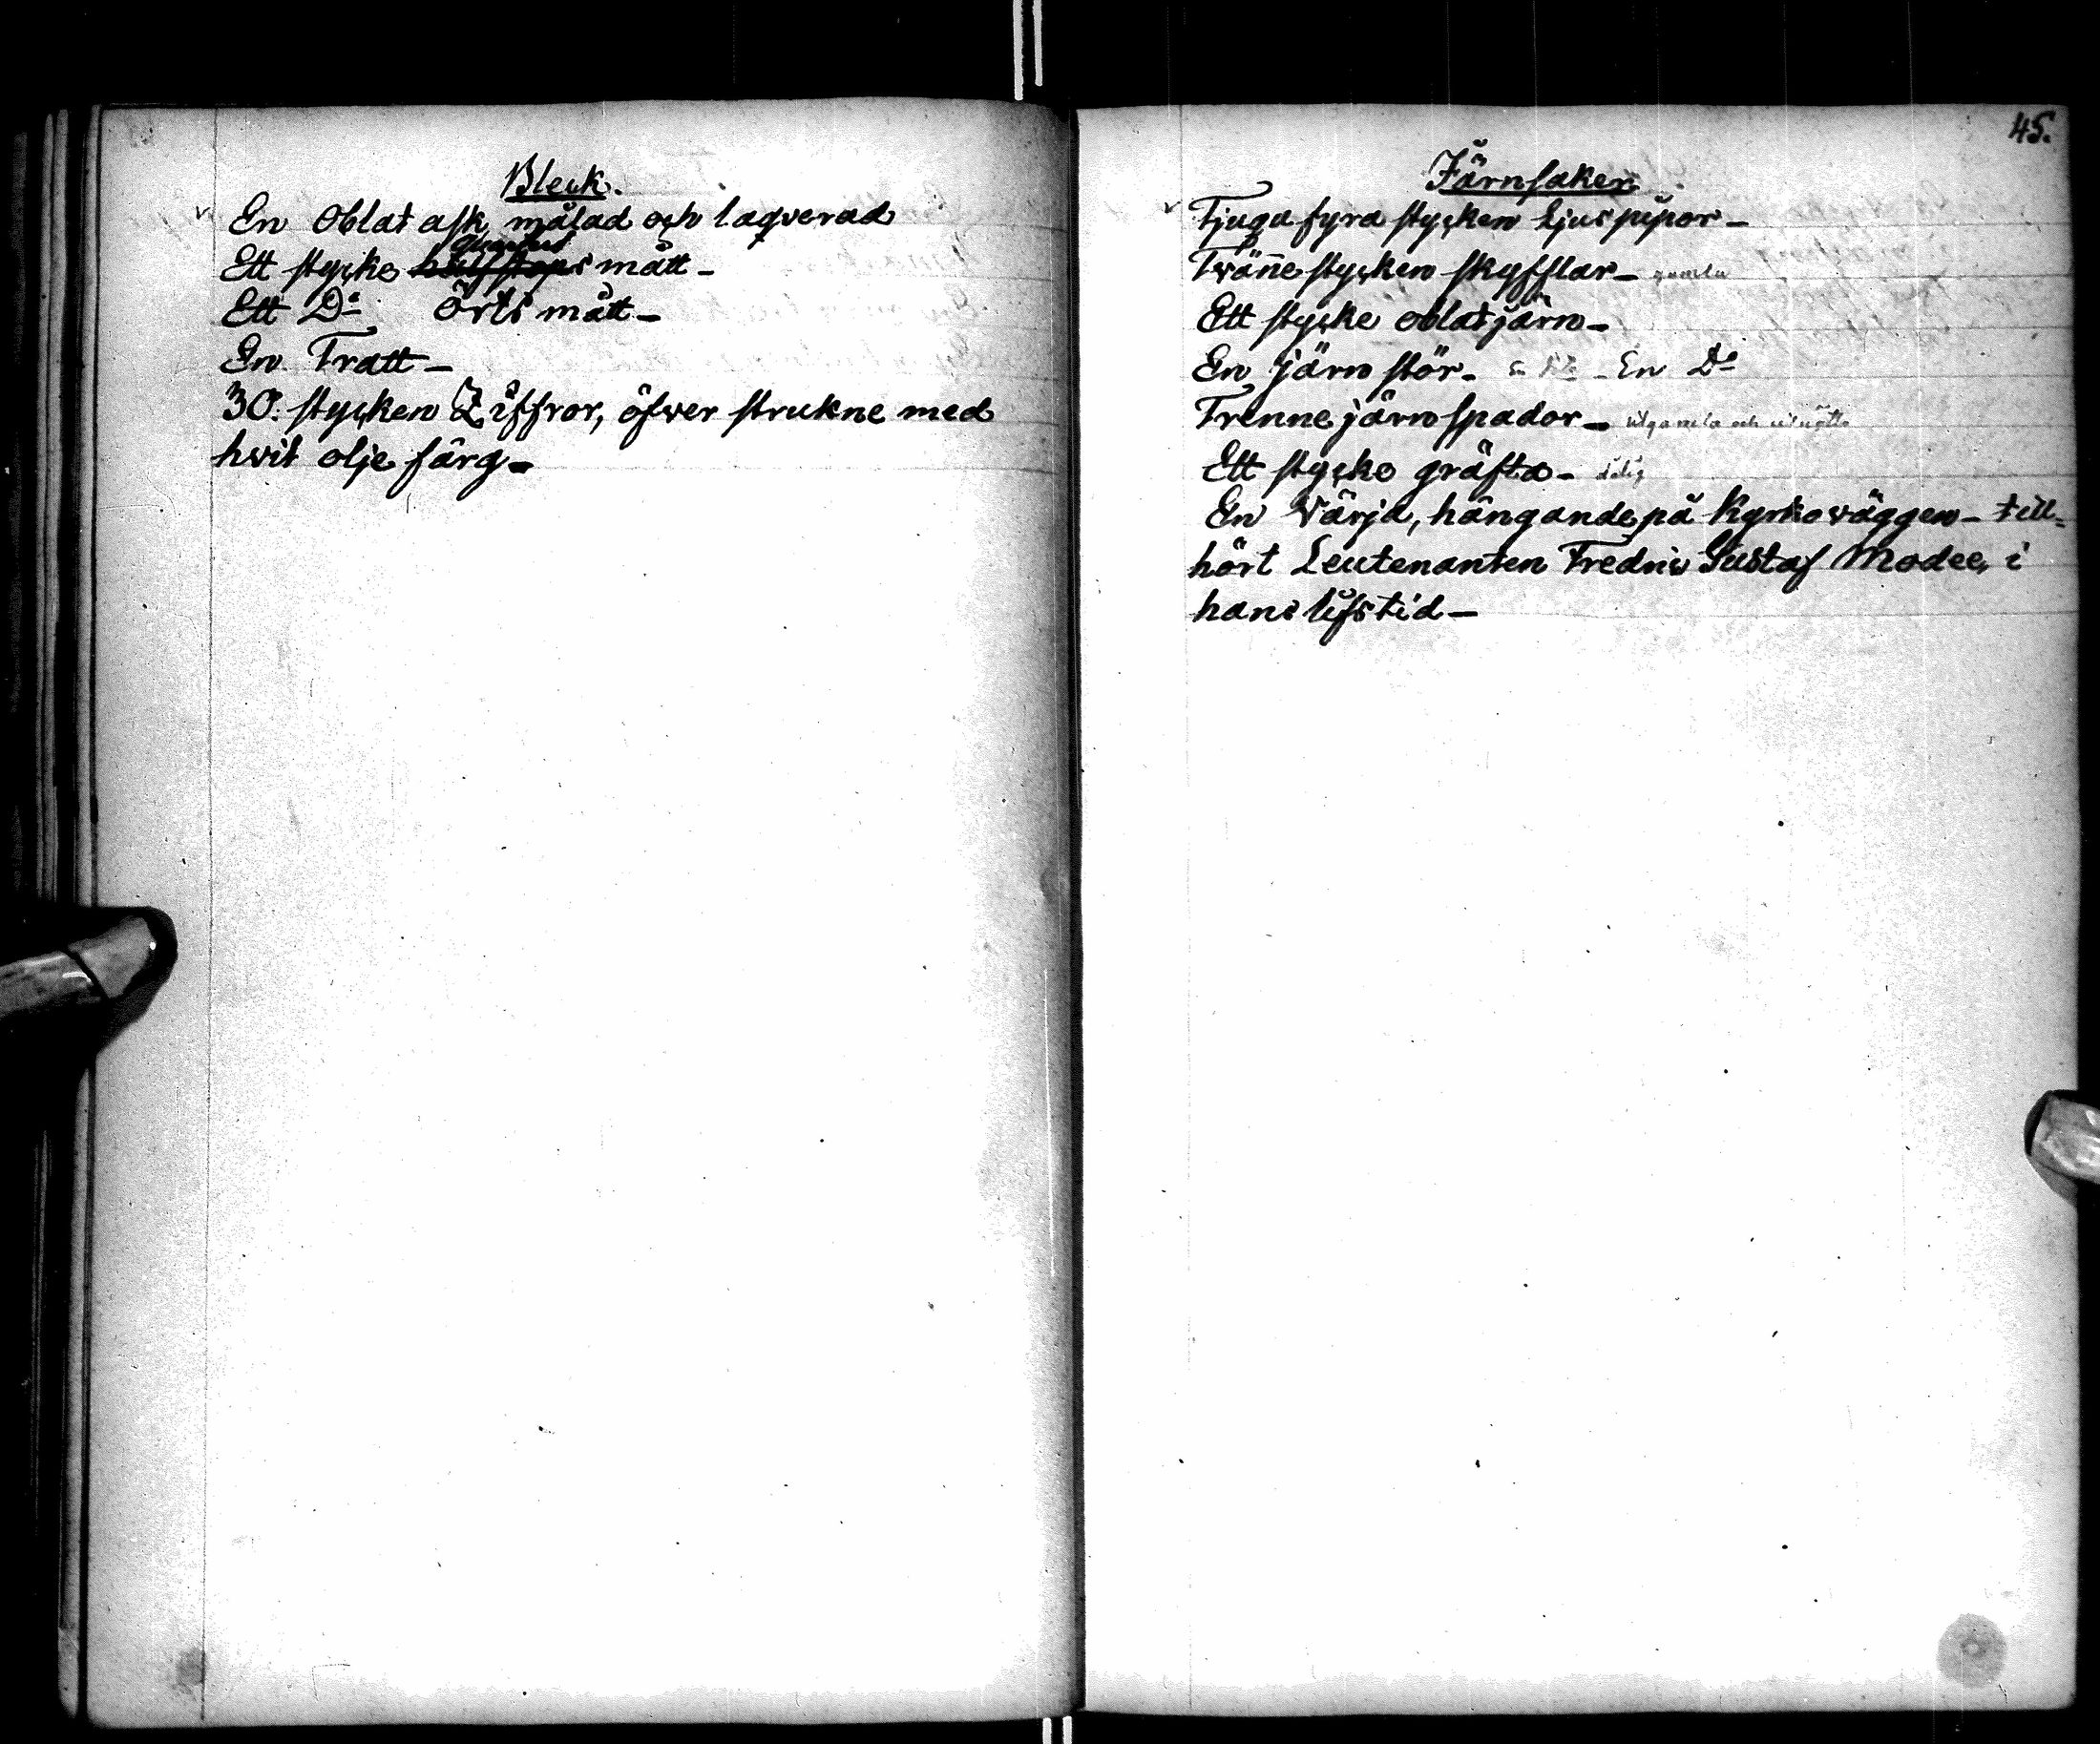 Bleck.
En Oblat ask, målad och laqverad
quarters
Ett stycke halfstops mått -
Ett D:o örts mått -
En Tratt -
30. stycken Ziffror, öfver strukne med
hvit olje färg -
45.
Järnsaker
Tjuga fyra stycken ljuspipor -
Tvänne stycken skyfflar - gamla
Ett stycke oblatjärn -
En järn stör. - En D:o
Trenne järn spador - utgamla och utnötta
Ett stycke gräfta - dålig
En Värja, hängande på Kyrkoväggen - till=
hört Leutenanten Fredric Gustaf Modee, i
hans lifstid -